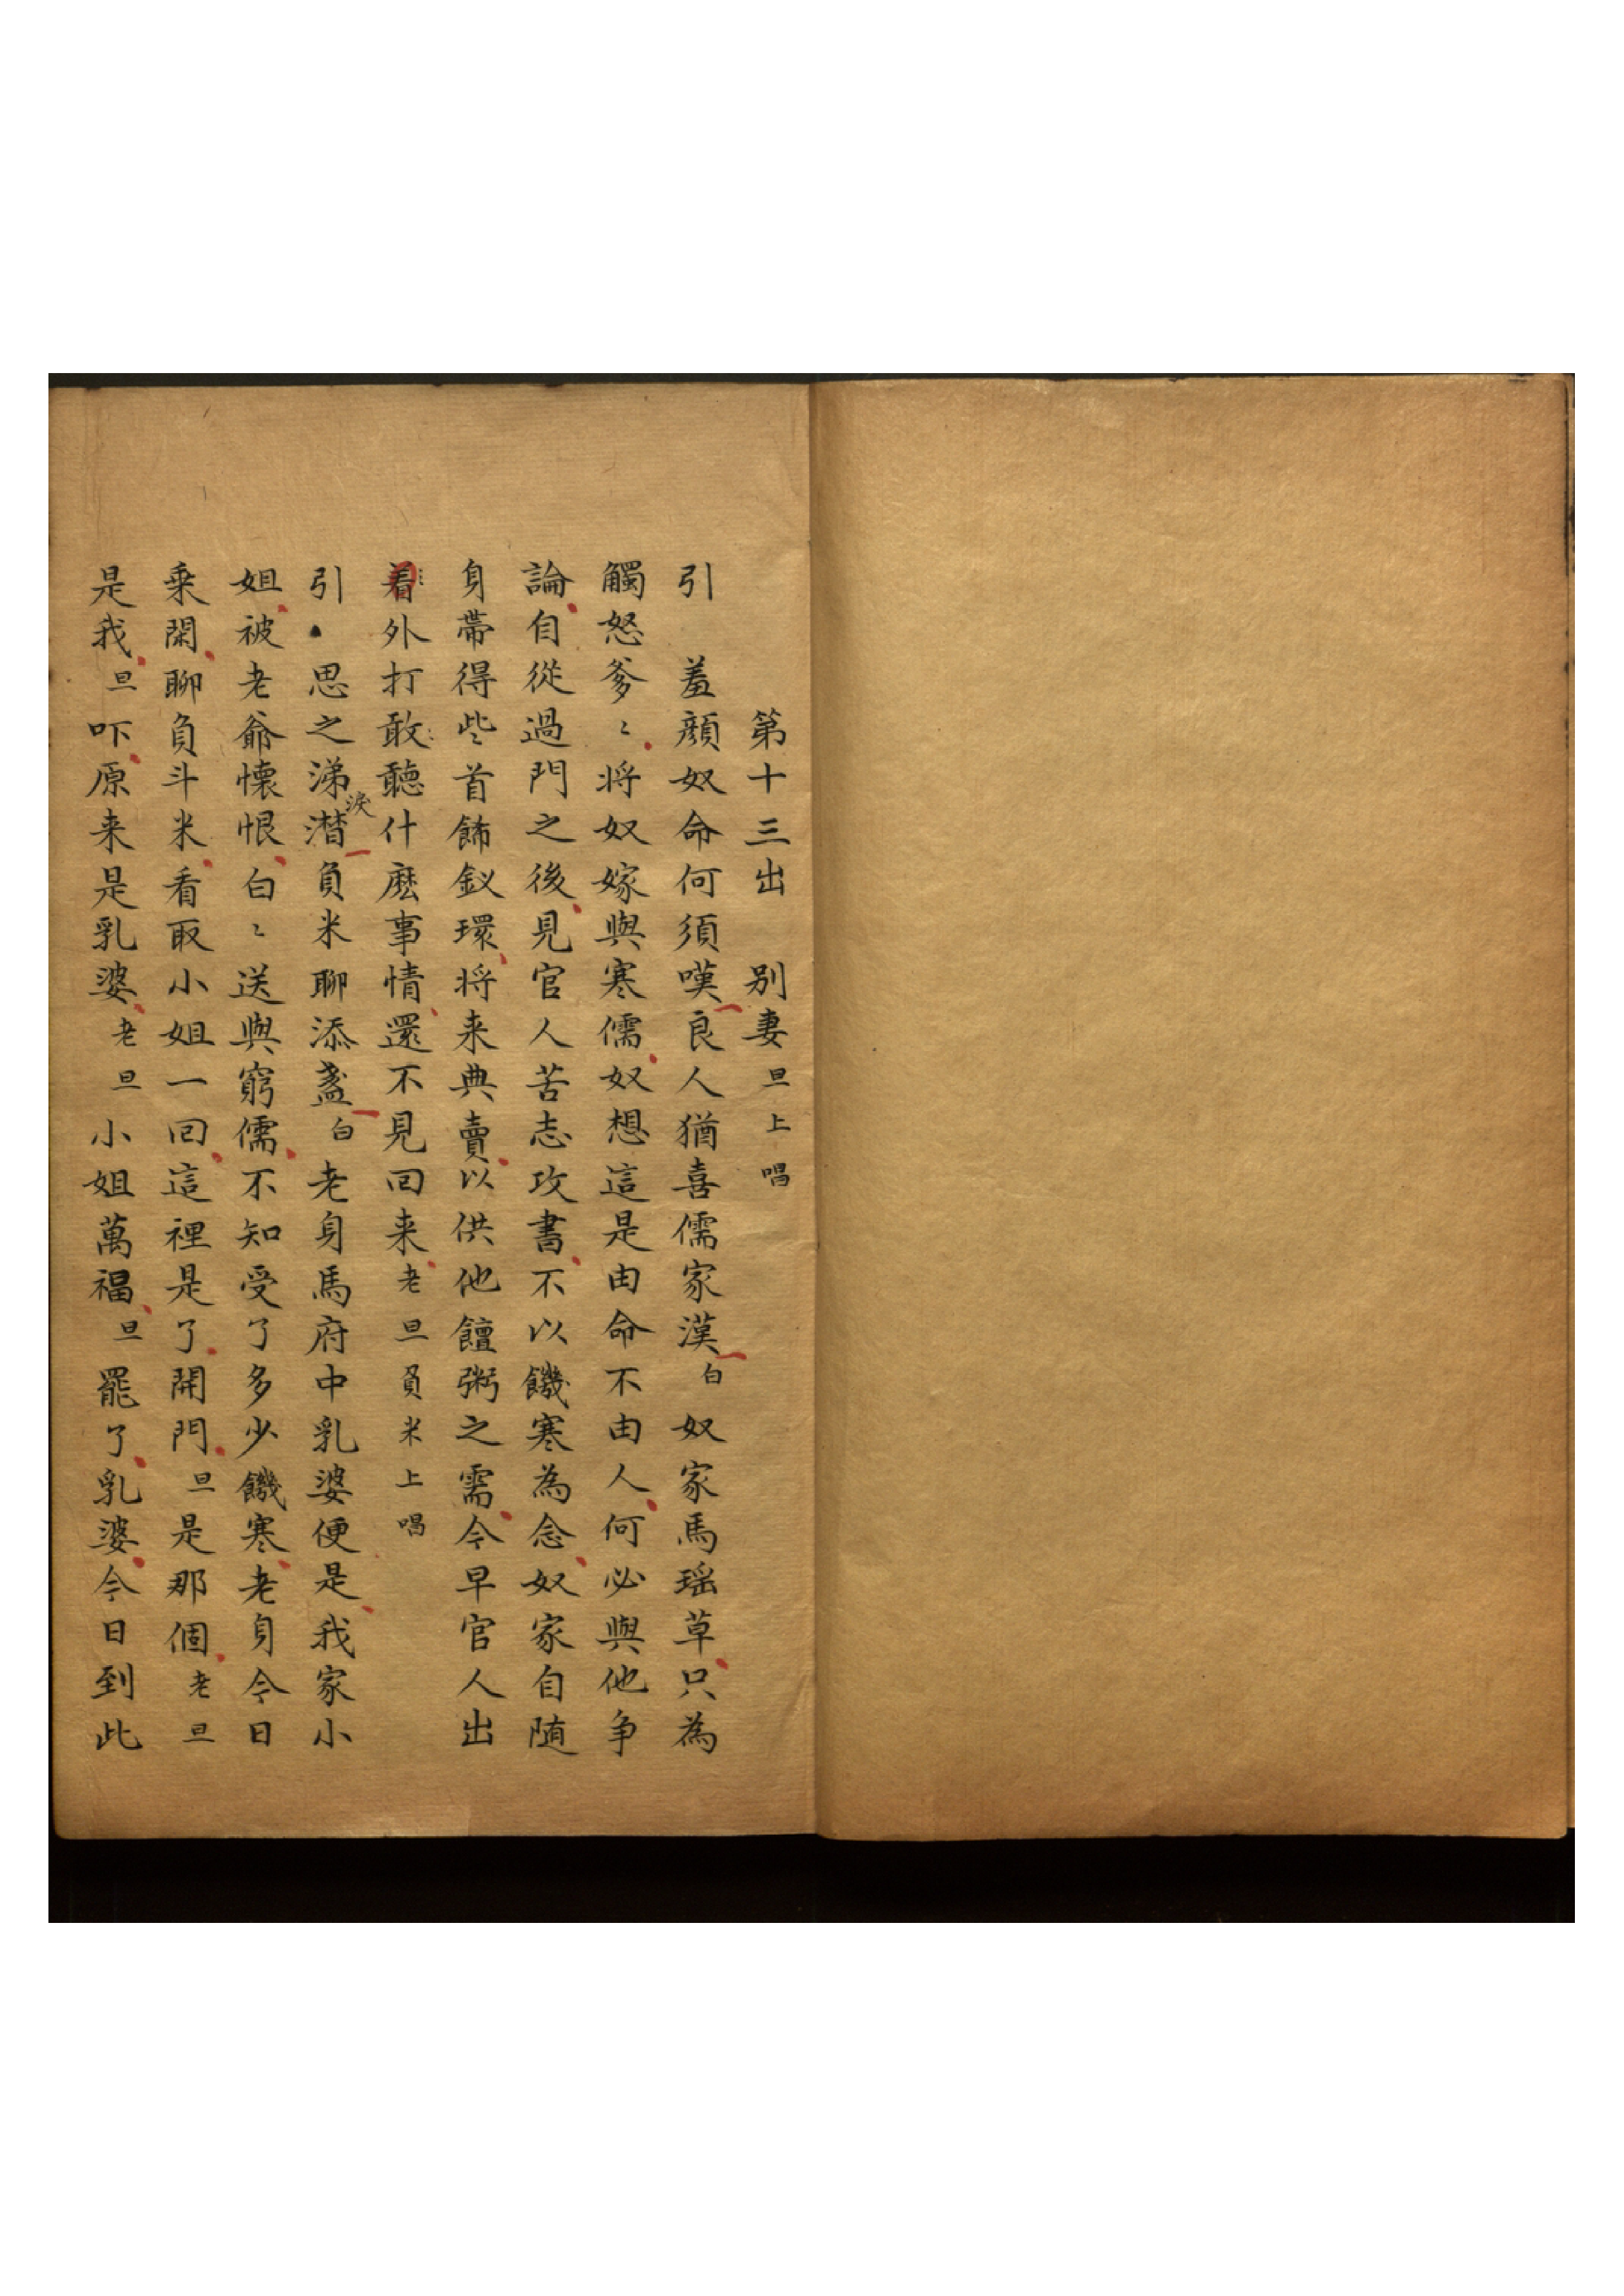 第十三出　别妻旦上唱
引　羞顔奴命何須嘆良人猶喜儒家漢白奴家馬瑶草只為
觸怒爹〻将奴嫁與寒儒奴想這是由命不由人何必與他争
論自從過門之後見官人苦志攻書不以饑寒為念奴家自随
身帶得些首飾釵環将来典賣以供他饘粥之需今早官人出
着外打敢聽什麽事情還不見回来老旦負米上唱
引　思之涕潸淚負米聊添盞白老身馬府中乳婆便是我家小
姐被老爺懐恨白〻送與窮儒不知受了多少饑寒老身今日
乘閑聊負斗米看取小姐一回這裡是了開門旦是那個老旦
是我旦吓原来是乳婆老旦小姐萬福旦罷了乳婆今日到此